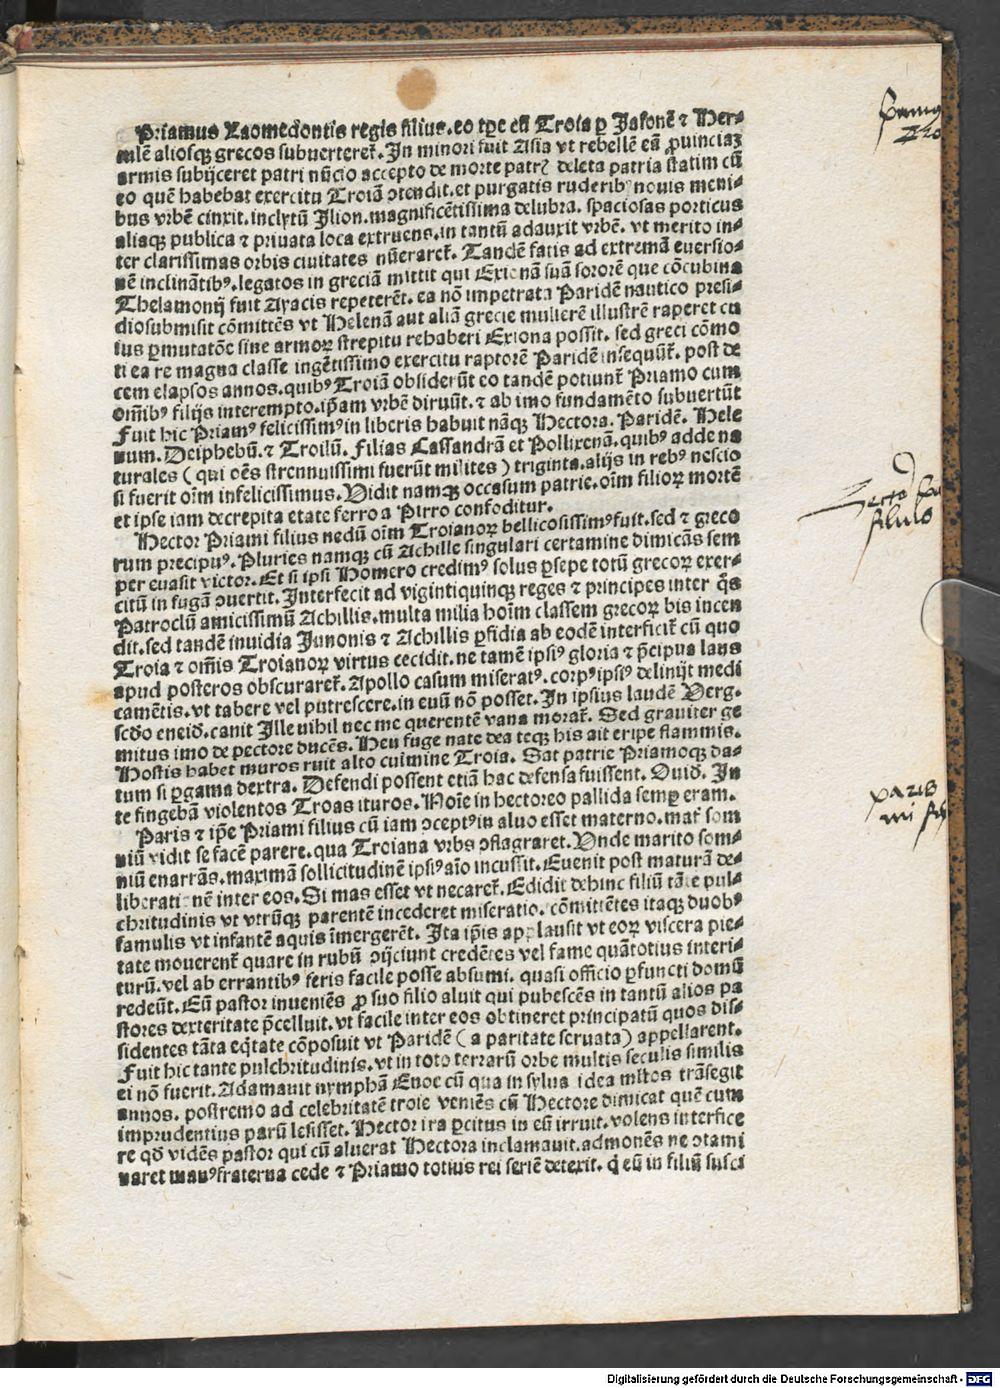 Priamus Laomedontis regis filius. eo tꝑe cũ Troia ꝑ Jasonẽ ⁊ Her⸗
culẽ aliosqꝫ grecos subuerteret̃. In minori fuit Asia vt rebellẽ eã ꝓuinciaꝫ
armis subijceret patri nũcio accepto de morte patrꝭ deleta patria statim cũ
eo quẽ habebat exercitu Troiã ↄtendit. et purgatis ruderibꝰ nouis meni⸗
bus vrbẽ cinxit. inclytũ Ilion. magnificẽtissima delubra. spaciosas porticus
aliaqꝫ publica ⁊ priuata loca extruens. in tantũ adauxit vrbẽ. vt merito in⸗
ter clarissimas orbis ciuitates nũeraret̃. Tandẽ fatis ad extremã euersio⸗
nẽ inclinãtibꝰ. legatos in greciã mittit qui Exionã suã sororẽ que cõcubina
Thelamonij fuit Ayacis repeterẽt. ea nõ impetrata Paridẽ nautico presi⸗
dio submisit cõmittẽs vt Helenã aut aliã grecie mulierẽ illustrẽ raperet cu
ius ꝑmutatõe sine armoꝝ strepitu rehaberi Exiona possit. sed greci cõmo
ti ea re magna classe ingẽtissimo exercitu raptorẽ Paridẽ insequũt̃. post de
cem elapsos annos. quibꝰ Troiã obsiderũt eo tandẽ potiunt̃ Priamo cum
om̃ibꝰ filijs interempto. ip̃am vrbẽ diruũt. ⁊ ab imo fundamẽto subuertũt
Fuit hic Priamꝰ felicissimꝰ in liberis habuit nãqꝫ Hectora. Paridẽ. Hele
num. Deiphebũ. ⁊ Troilũ. Filias Cassandrã et Pollixenã. quibꝰ adde na
turales (qui oẽs strennuissimi fuerũt milites) triginta. alijs in rebꝰ nescio
si fuerit oĩm infelicissimus. Vidit namqꝫ occasum patrie. oĩm filioꝝ mortẽ
et ipse iam decrepita etate ferro a Pirro confoditur.
Hector Priami filius nedũ oĩm Troianoꝝ bellicosissimꝰ fuit. sed ⁊ greco
rum precipuꝰ. Pluries namqꝫ cũ Achille singulari certamine dimicãs sem
per euasit victor. Et si ipsi Homero credimꝰ solus ꝑsepe totũ grecoꝝ exer⸗
citũ in fugã ↄuertit. Interfecit ad vigintiquinqꝫ reges ⁊ principes inter q̃s
Patroclũ amicissimũ Achillis. multa milia hoĩm classem grecoꝝ bis incen
dit. sed tandẽ inuidia Junonis ⁊ Achillis ꝑfidia ab eodẽ interficit̃ cũ quo
Troia ⁊ om̃is Troianoꝝ virtus cecidit. ne tamẽ ipsiꝰ gloria ⁊ p̃cipua laus
apud posteros obscuraret̃. Apollo casum miseratꝰ. corpꝰ ipsiꝰ delinijt medi
camẽtis. vt tabere vel putrescere. in euũ nõ posset. In ipsius laudẽ Verg.
scd̃o eneid̃. canit Ille nihil nec me querentẽ vana morat̃. Sed grauiter ge
mitus imo de pectore ducẽs. Heu fuge nate dea teqꝫ his ait eripe flammis.
Hostis habet muros ruit alto culmine Troia. Sat patrie Priamoqꝫ da⸗
tum si ꝑgama dextra. Defendi possent etiã hac defensa fuissent. Ouid̃. In
te fingebã violentos Troas ituros. Noĩe in hectoreo pallida semꝑ eram.
Paris ⁊ ip̃e Priami filius cũ iam ↄceptꝰ in aluo esset materno. mat̃ som
niũ vidit se facẽ parere. qua Troiana vrbs ↄflagraret. Vnde marito som⸗
niũ enarrãs. maximã sollicitudinẽ ipsiꝰ aĩo incussit. Euenit post maturã de⸗
liberationẽ inter eos. Si mas esset vt necaret̃. Edidit dehinc filiũ tãte pul⸗
chritudinis vt vtrũqꝫ parentẽ incederet miseratio. cõmittẽtes itaqꝫ duobꝰ
famulis vt infantẽ aquis ĩmergerẽt. Ita ip̃is applausit vt eoꝝ viscera pie⸗
tate mouerent̃ quare in rubũ ↄijciunt credẽtes vel fame quãtotius interi⸗
turũ. vel ab errantibꝰ feris facile posse absumi. quasi officio ꝑfuncti domũ
redeũt. Eũ pastor inueniẽs ꝓ suo filio aluit qui pubescẽs in tantũ alios pa
stores dexteritate p̃celluit. vt facile inter eos obtineret principatũ quos dis⸗
sidentes tãta eq̃tate cõposuit vt Paridẽ (a paritate seruata) appellarent.
Fuit hic tante pulchritudinis. vt in toto terrarũ orbe multis seculis similis
ei nõ fuerit. Adamauit nymphã Enoe cũ qua in sylua idea ml̃tos trãsegit
annos. postremo ad celebritatẽ troie veniẽs cũ Hectore dimicat quẽ cum
imprudentius parũ lesisset. Hector ira ꝑcitus in eũ irruit. volens interfice
re qđ vidẽs pastor qui cũ aluerat Hectora inclamauit. admonẽs ne ↄtami
naret manꝰ fraterna cede ⁊ Priamo totius rei seriẽ detexit. q̃ eũ in filiũ susci
Digitalisierung gefördert durch die Deutsche Forschungsgemeinschaft - DFG